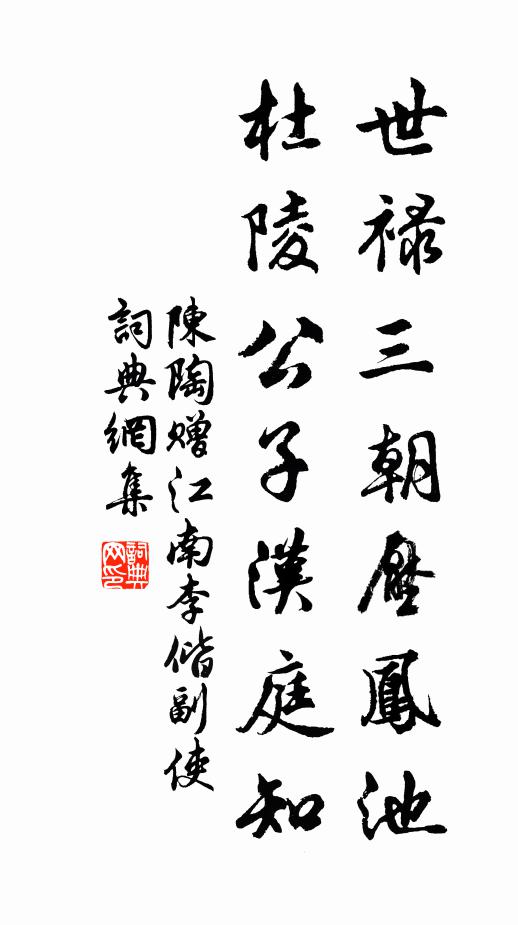 世祿三朝壓鳳池
杜陵公子漢庭知
陳陶贈江南李偕副使
詞典網集
詞典
網印